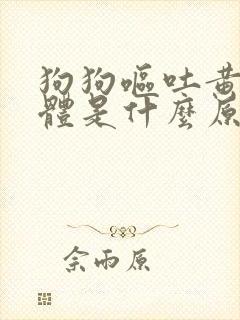 狗狗嘔吐黃
體是什麼原
余雨原